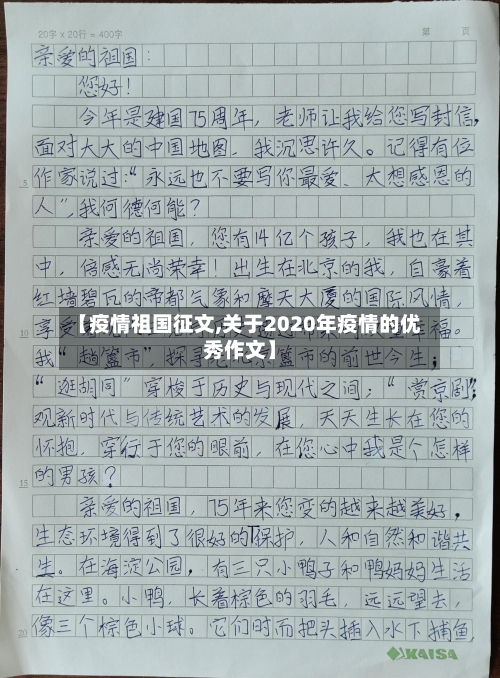 20字 x 20行 = 400字
第 页
亲爱的祖国：
您好！
今年是建国75周年，老师让我给您写封信，
面对大大的中国地图，我沉思许久。记得有位
5
作家说过："永远也不要写你最爱、太想感恩的
人"，我何德何能？
亲爱的祖国，您有14亿个孩子，我也在其
中，倍感无尚荣幸！出生在北京的我，自豪着
红墙碧瓦的帝都气象和摩天大厦的国际风情，
【疫情祖国征文,关于2020年疫情的优
秀作文】
享受
幸福。
我"趟簋市"，探寻
簋市的前世今生；
"逛胡同"穿梭于历史与现代之间；"赏京剧"
观新时代与传统艺术的发展，天天生长在您的
怀抱，穿行于您的眼前，在您心中我是个怎样
15
的男孩？
亲爱的祖国，75年来您变的越来越美好，
生态环境得到了很好的保护，人和自然和谐共
生。在海淀公园，有三只小鸭子和鸭妈妈生活
在这里。小鸭，长着棕色的羽毛，远远望去，
20
像三个棕色小球。它们时而把头插入水下捕鱼，
KAISA